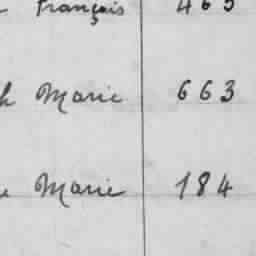 François 465
h Marie 663
e Marie 184